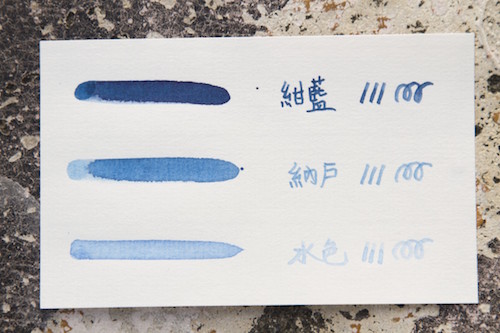 紺藍
納戸
水色